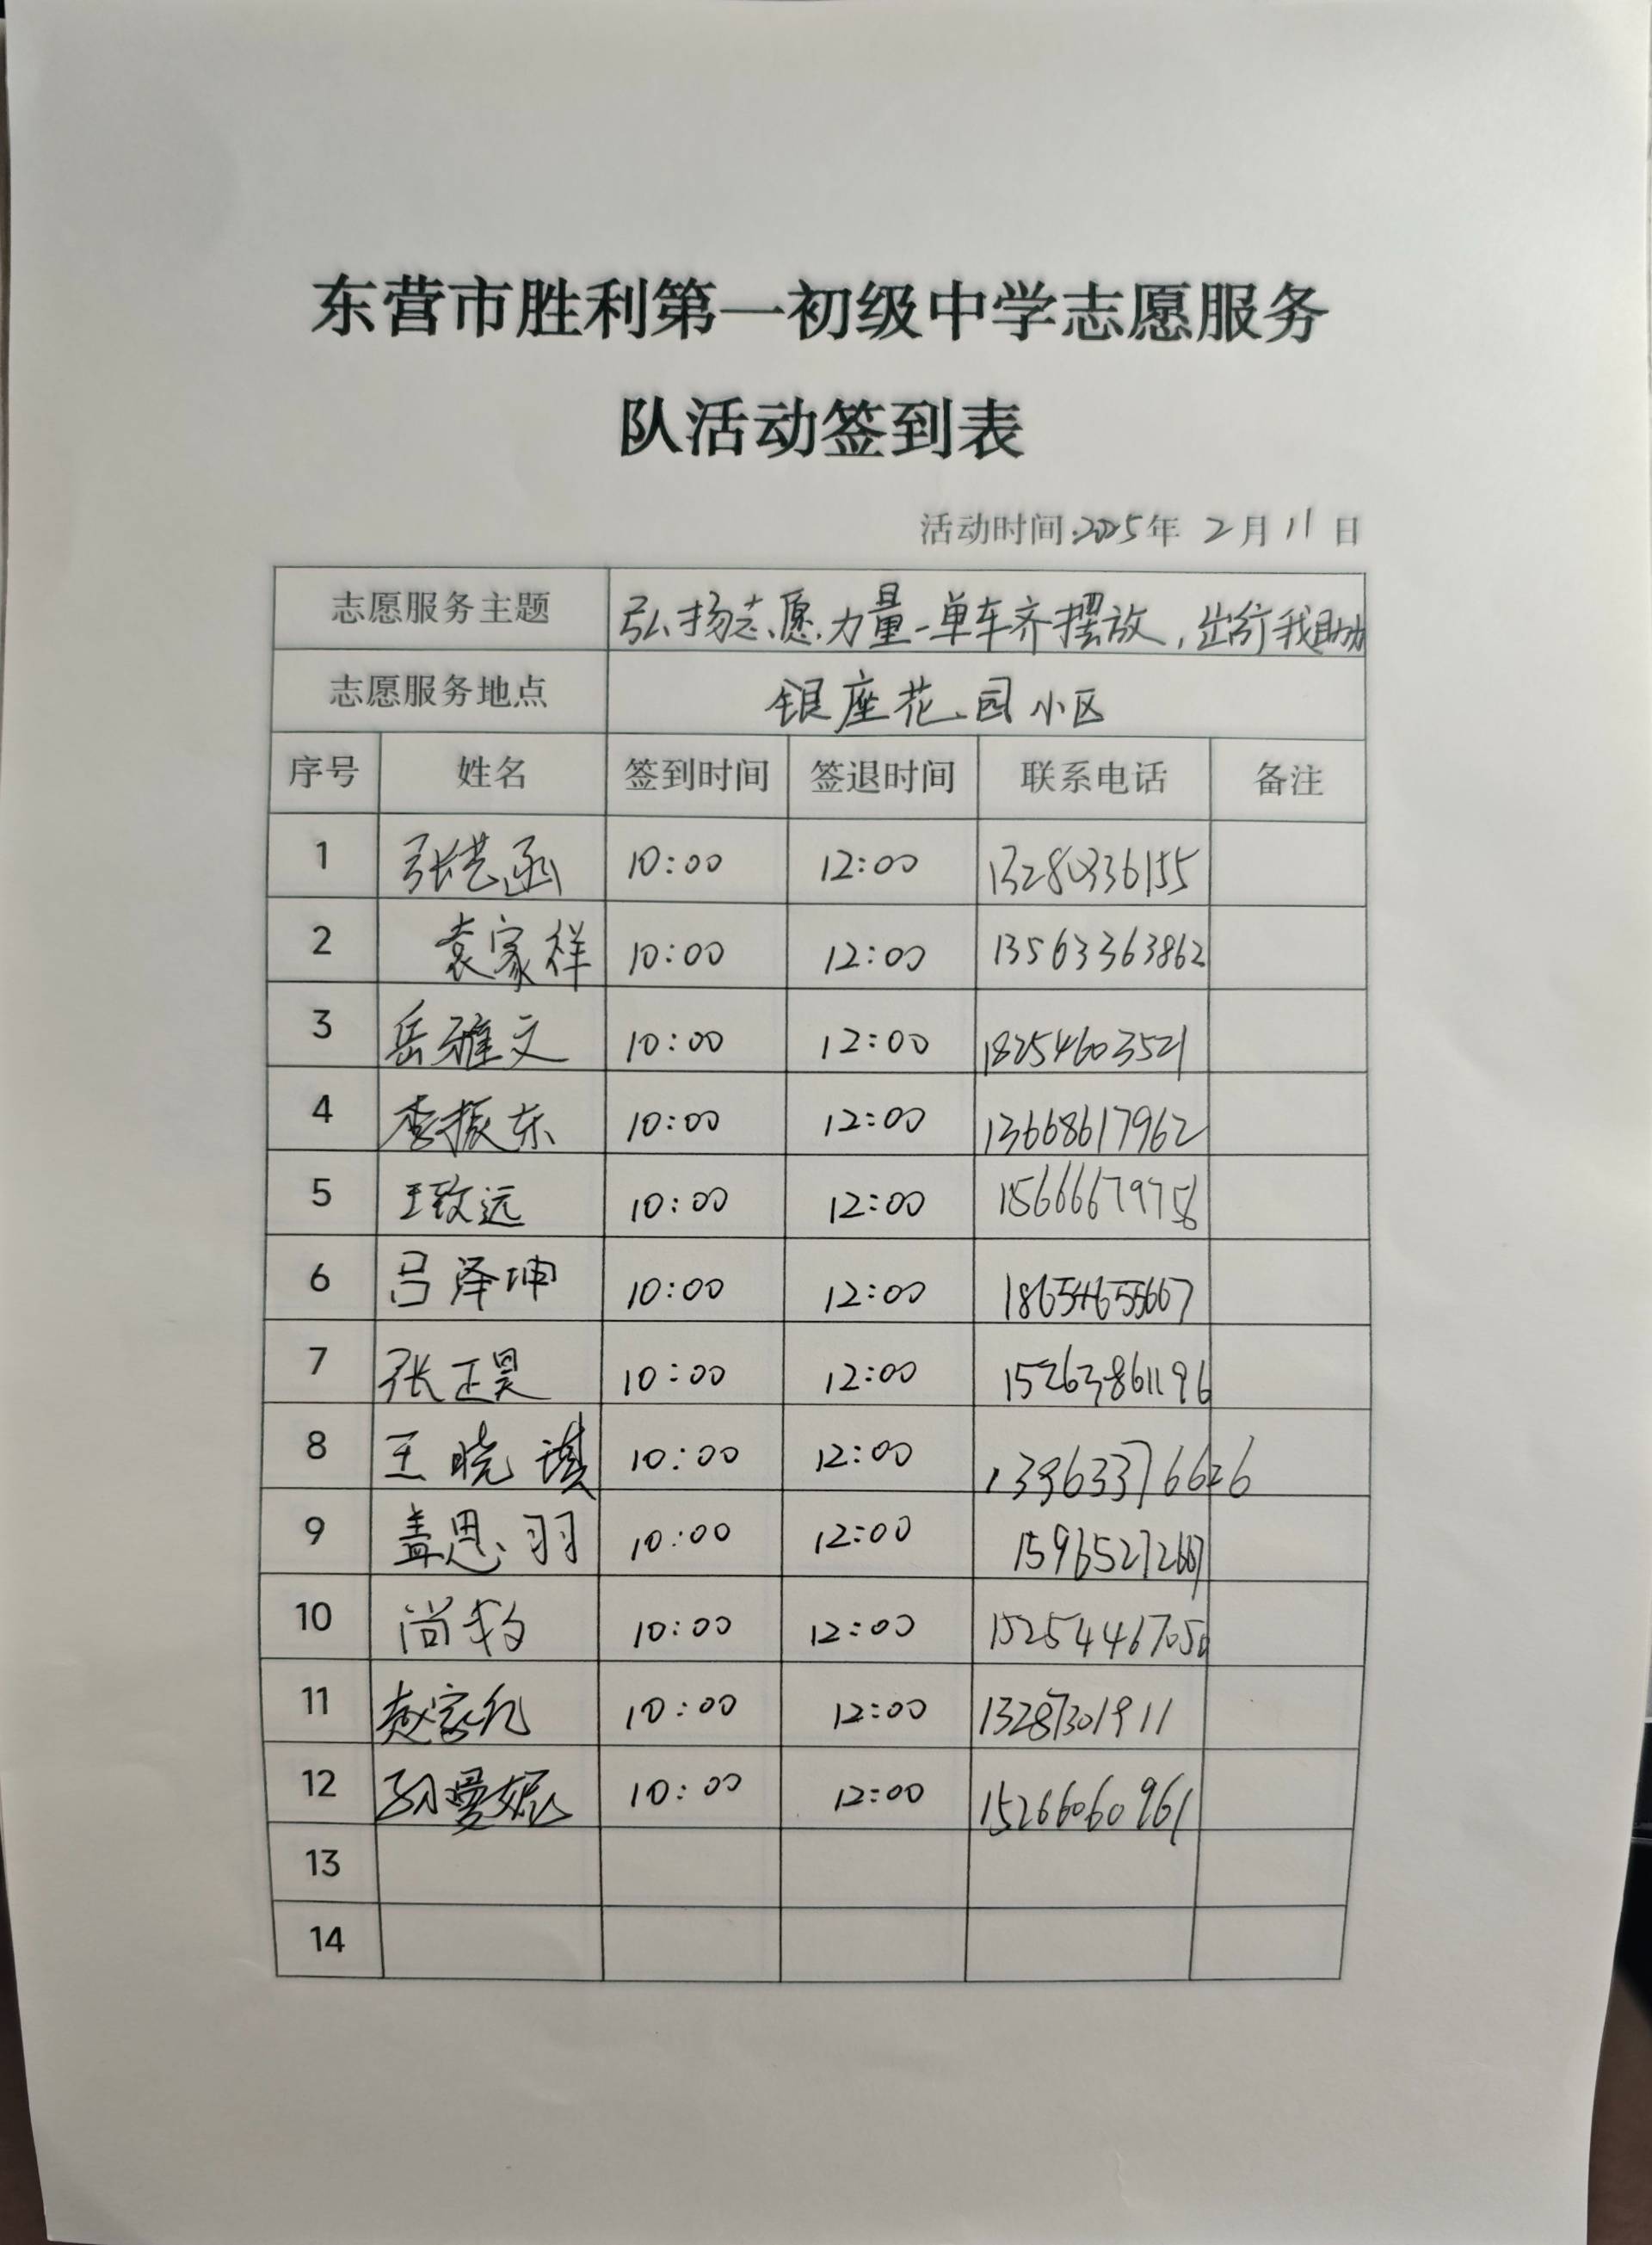 东营市胜利第一初级中学志愿服务
队活动签到表
活动时间:2025年 2月 11日
志愿服务主题 弘扬志愿力量-单车齐摆放,出行我助力
志愿服务地点 银座花园小区
序号 姓名 签到时间 签退时间 联系电话 备注
1 张艺函 10:00 12:00 13280336155
2 袁家祥 10:00 12:00 13563363862
3 岳雅文 10:00 12:00 18254603521
4 李振东 10:00 12:00 13668617962
5 王致远 10:00 12:00
6 吕泽坤 10:00 12:00 18654655667
7 张正昊 10:00 12:00 15263861196
8 王晓琪 10:00 12:00 13963376626
9 盖思羽 10:00 12:00 15965272667
10 尚 10:00 12:00 15254467050
11 赵家 10:00 12:00 13287301911
12 孙曼妮 10:00 12:00 15266060961
13
14